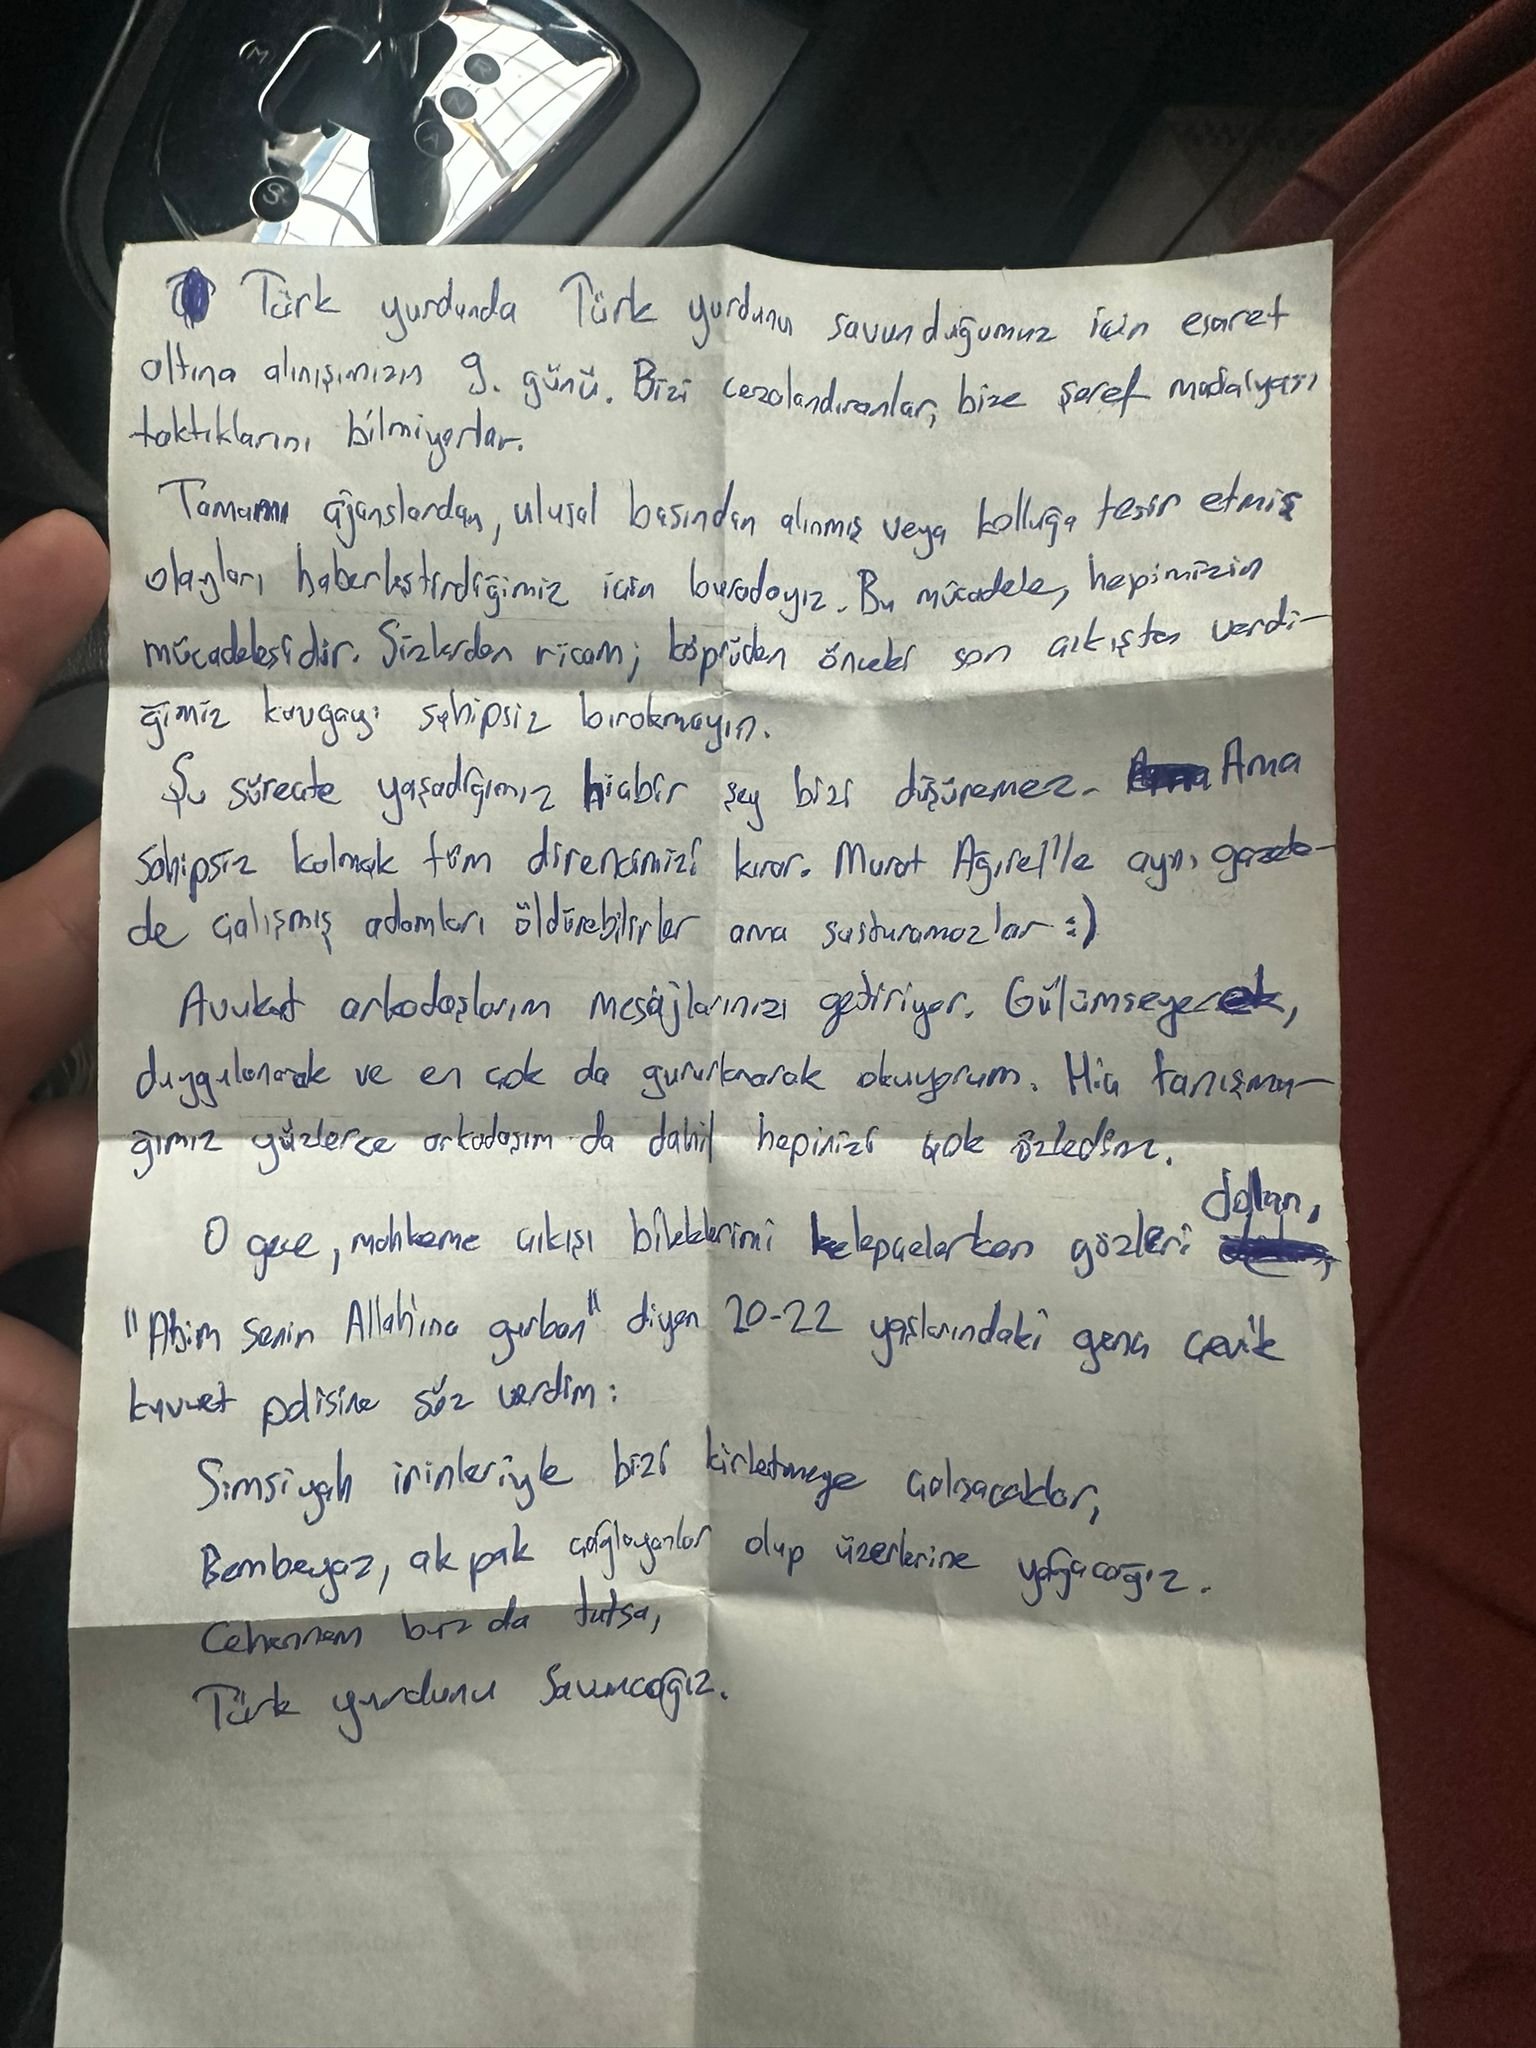 M
R
N
A
S
Türk yurdunda Türk yurdunu savunduğumuz için esaret
altına alınışımızın 9. günü. Bizi cezalandıranlar, bize şeref madalyası
taktıklarını bilmiyorlar.
Tamamı ajanslardan, ulusal basından alınmış veya kolluğa tesir etmiş
olayları haberleştirdiğimiz için buradayız. Bu mücadele, hepimizin
mücadelesidir. Sizlerden ricam; köprüden önceki son çıkışta verdi-
ğimiz kavgayı sahipsiz bırakmayın.
Şu süreçte yaşadığımız hiçbir şey bizi düşüremez. Ama
sahipsiz kalmak tüm direncimizi kırar. Murat Ağırel'le aynı gazete-
de çalışmış adamları öldürebilirler ama susturamazlar :)
Avukat arkadaşlarım mesajlarınızı getiriyor. Gülümseyerek,
duygulanarak ve en çok da gururlanarak okuyorum. Hiç tanışma-
ğımız yüzlerce arkadaşım da dahil hepinizi çok özledim.
O gece, mahkeme çıkışı bileklerimi kelepçelerken gözleri dolan,
"Abim senin Allah'ına gurban" diyen 20-22 yaşlarındaki genç çevik
kuvvet polisine söz verdim:
Simsiyah irinleriyle bizi kirletmeye çalışacaklar,
Bembeyaz, ak pak çağlayanlar olup üzerlerine yağacağız.
Cehennem buz da tutsa,
Türk yurdunu savunacağız.